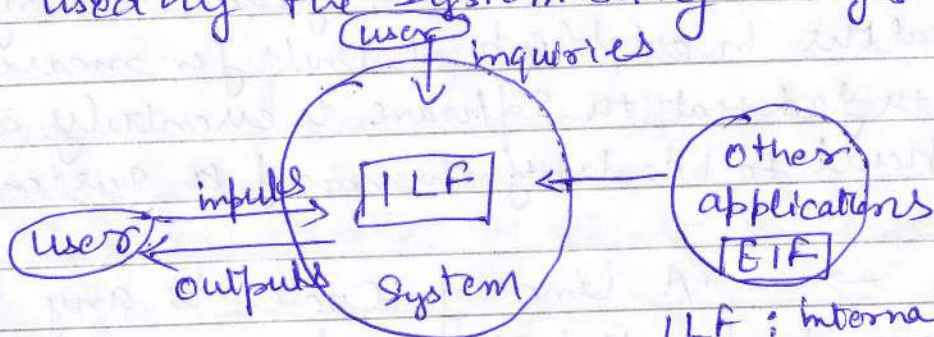 used by the system
user
inquiries
ILF
other
applications
EIF
inputs
user
outputs
System
ILF : Interna